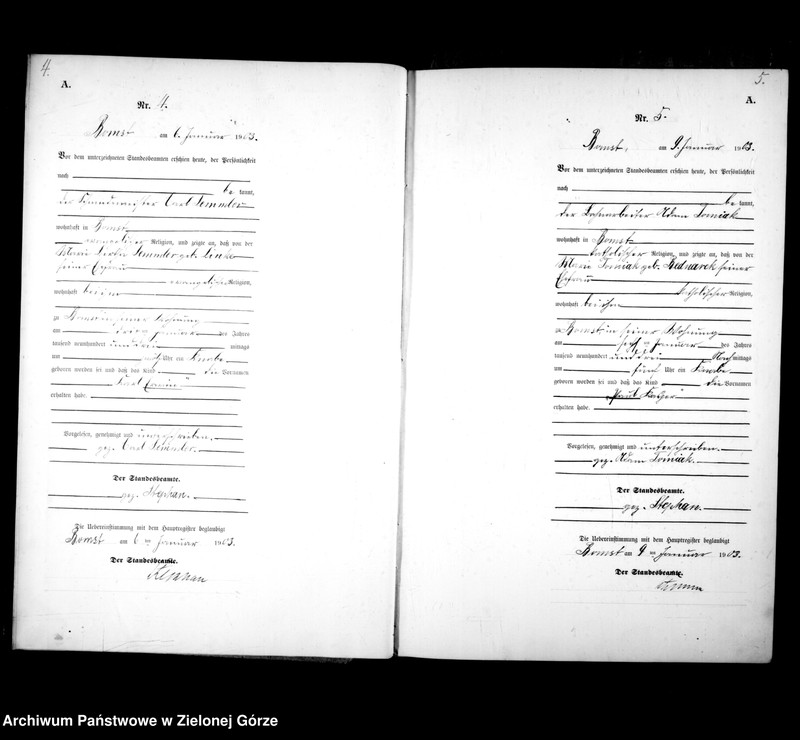 4.
A.
Nr. 4.
Bomst am 6. Januar 1903.
Vor dem unterzeichneten Standesbeamten erschien heute, der Persönlichkeit
nach
be kannt,
der Carl Semmler
wohnhaft in Bomst
evangelischer Religion, und zeigte an, daß von der
Semmler geb. Linke
seiner Ehefrau
evangelischer Religion,
wohnhaft bei ihm
zu Bomst in seiner Wohnung
am Januar des Jahres
tausend neunhundert und drei mittags
um Uhr ein Knabe
geboren worden sei und daß das Kind die Vornamen
Karl
erhalten habe.
Vorgelesen, genehmigt und unterschrieben.
gez. Carl Semmler.
Der Standesbeamte.
gez. Stephan.
Die Uebereinstimmung mit dem Hauptregister beglaubigt
Bomst am 6 ten Januar 1903.
Der Standesbeamte.
Stephan
5.
A.
Nr. 5.
Bomst, am 9. Januar 1903.
Vor dem unterzeichneten Standesbeamten erschien heute, der Persönlichkeit
nach
be kannt,
der Adam Tomiak
wohnhaft in Bomst
katholischer Religion, und zeigte an, daß von der
Marie Tomiak geb. Bednarek seiner
Ehefrau
katholischer Religion,
wohnhaft bei ihm
zu Bomst in seiner Wohnung
am Januar des Jahres
tausend neunhundert und drei Nach mittags
um fünf Uhr ein Knabe
geboren worden sei und daß das Kind die Vornamen
"Paul
erhalten habe.
Vorgelesen, genehmigt und unterschrieben.
gez. Adam Tomiak.
Der Standesbeamte.
gez. Stephan.
Die Uebereinstimmung mit dem Hauptregister beglaubigt
Bomst am 9 ten Januar 1903.
Der Standesbeamte.
Archiwum Państwowe w Zielonej Górze